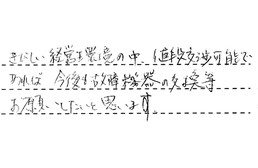 きびしい経営環境の中、値段交渉可能で
あれば今後も故障機器の交換等
お願いしたいと思います。